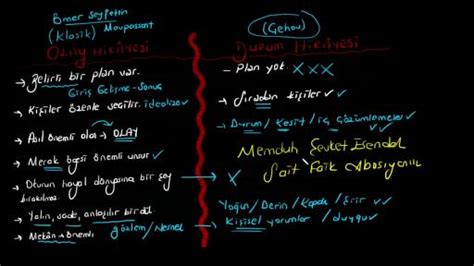 Ömer Seyfettin
(Klasik) Maupassant
OLAY HİKAYESİ
→ Belirli bir plan var.
Giriş Gelişme-Sonuç
→ Kişiler özenle seçilir. idealize ✓
→ Asıl önemli olan → OLAY
→ Merak ögesi önemli unsur ✓
→ Okurun hayal dünyasına bir şey bırakılmaz.
→ Yalın, sade, anlaşılır bir dil.
→ Mekân → Önemli gözlem / Nesnel
(Çehov)
DURUM HİKAYESİ
- Plan yok. XXX
→ Sıradan kişiler ✓
→ Durum / Kesit / iç çözümlemeler ✓
Memduh Şevket Esendal
Sait Faik Abasıyanık
X
Yoğun / Derin / Kapalı / Şiir ✓✓
Kişisel yorumlar / duygu ✓